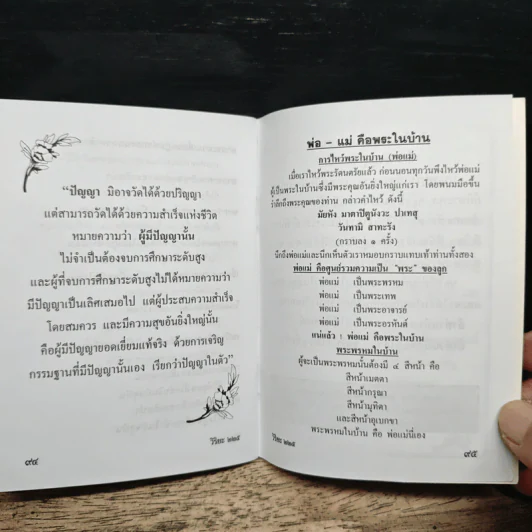 "ปัญญา มิอาจวัดได้ด้วยปริญญา
แต่สามารถวัดได้ด้วยความสำเร็จแห่งชีวิต
หมายความว่า ผู้มีปัญญานั้น
ไม่จำเป็นต้องจบการศึกษาระดับสูง
และผู้ที่จบการศึกษาระดับสูงไม่ได้หมายความว่า
มีปัญญาเป็นเลิศเสมอไป แต่ผู้ประสบความสำเร็จ
โดยสมควร และมีความสุขอันยิ่งใหญ่นั้น
คือผู้มีปัญญายอดเยี่ยมแท้จริง ด้วยการเจริญ
กรรมฐานที่มีปัญญานั้นเอง เรียกว่าปัญญาในตัว"
วิริยะ ๒๒๕
๙๔
พ่อ - แม่ คือพระในบ้าน
การไหว้พระในบ้าน (พ่อแม่)
เมื่อเราไหว้พระรัตนตรัยแล้ว ก่อนนอนทุกวันพึงไหว้พ่อแม่
ผู้เป็นพระในบ้านซึ่งมีพระคุณอันยิ่งใหญ่แก่เรา โดยพนมมือขึ้น
รำลึกถึงพระคุณของท่าน กล่าวคำไหว้ ดังนี้
มัยหัง มาตาปิตูนังวะ ปาเทสุ
วันทามิ สาทะรัง
(กราบลง ๑ ครั้ง)
นึกถึงพ่อแม่และนึกเห็นตัวเราหมอบกราบแทบเท้าท่านทั้งสอง
พ่อแม่ คือศูนย์รวมความเป็น "พระ" ของลูก
พ่อแม่ เป็นพระพรหม
พ่อแม่ เป็นพระเทพ
พ่อแม่ เป็นพระอาจารย์
พ่อแม่ เป็นพระอรหันต์
แน่แล้ว ! พ่อแม่ คือพระในบ้าน
พระพรหมในบ้าน
ผู้จะเป็นพระพรหมนั้นต้องมี ๔ สีหน้า คือ
สีหน้าเมตตา
สีหน้ากรุณา
สีหน้ามุทิตา
และสีหน้าอุเบกขา
พระพรหมในบ้าน คือ พ่อแม่นี่เอง
วิริยะ ๒๒๕
๙๕